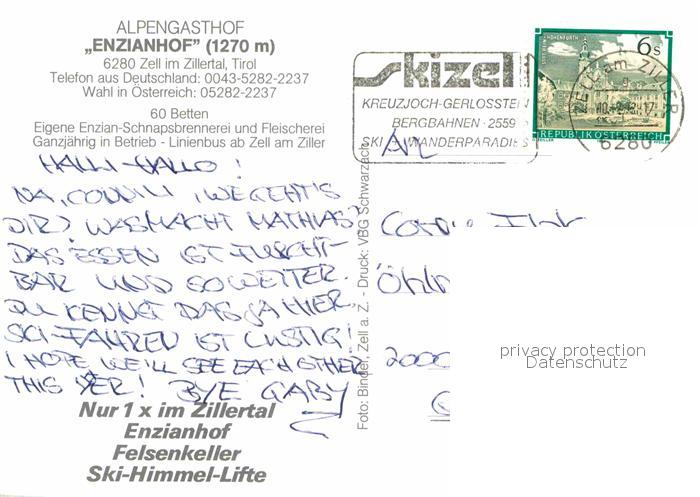 ALPENGASTHOF
„ENZIANHOF" (1270 m)
6280 Zell im Zillertal, Tirol
Telefon aus Deutschland: 0043-5282-2237
Wahl in Österreich: 05282-2237
60 Betten
Eigene Enzian-Schnapsbrennerei und Fleischerei
Ganzjährig in Betrieb - Linienbus ab Zell am Ziller
HALLI-HALLO!
NA, CONNI, WIE GEHT'S
DIR? WAS MACHT MATHIAS?
DAS ESSEN IST FURCHT-
BAR UND SO WETTER.
DU KENNST DAS JA HIER.
SCI-FAHREN IST LUSTIG!
I HOPE WE'LL SEE EACH OTHER
THIS YER! BYE GABY
Nur 1 x im Zillertal
Enzianhof
Felsenkeller
Ski-Himmel-Lifte
Foto: Binder, Zell a. Z. - Druck: VBG Schwarzach
skizell
KREUZJOCH-GERLOSSTEIN
BERGBAHNEN · 2559
SKI WANDERPARADIES
6 S
REPUBLIK ÖSTERREICH
ZELL am ZILLER
6280
An
2000
privacy protection
Datenschutz